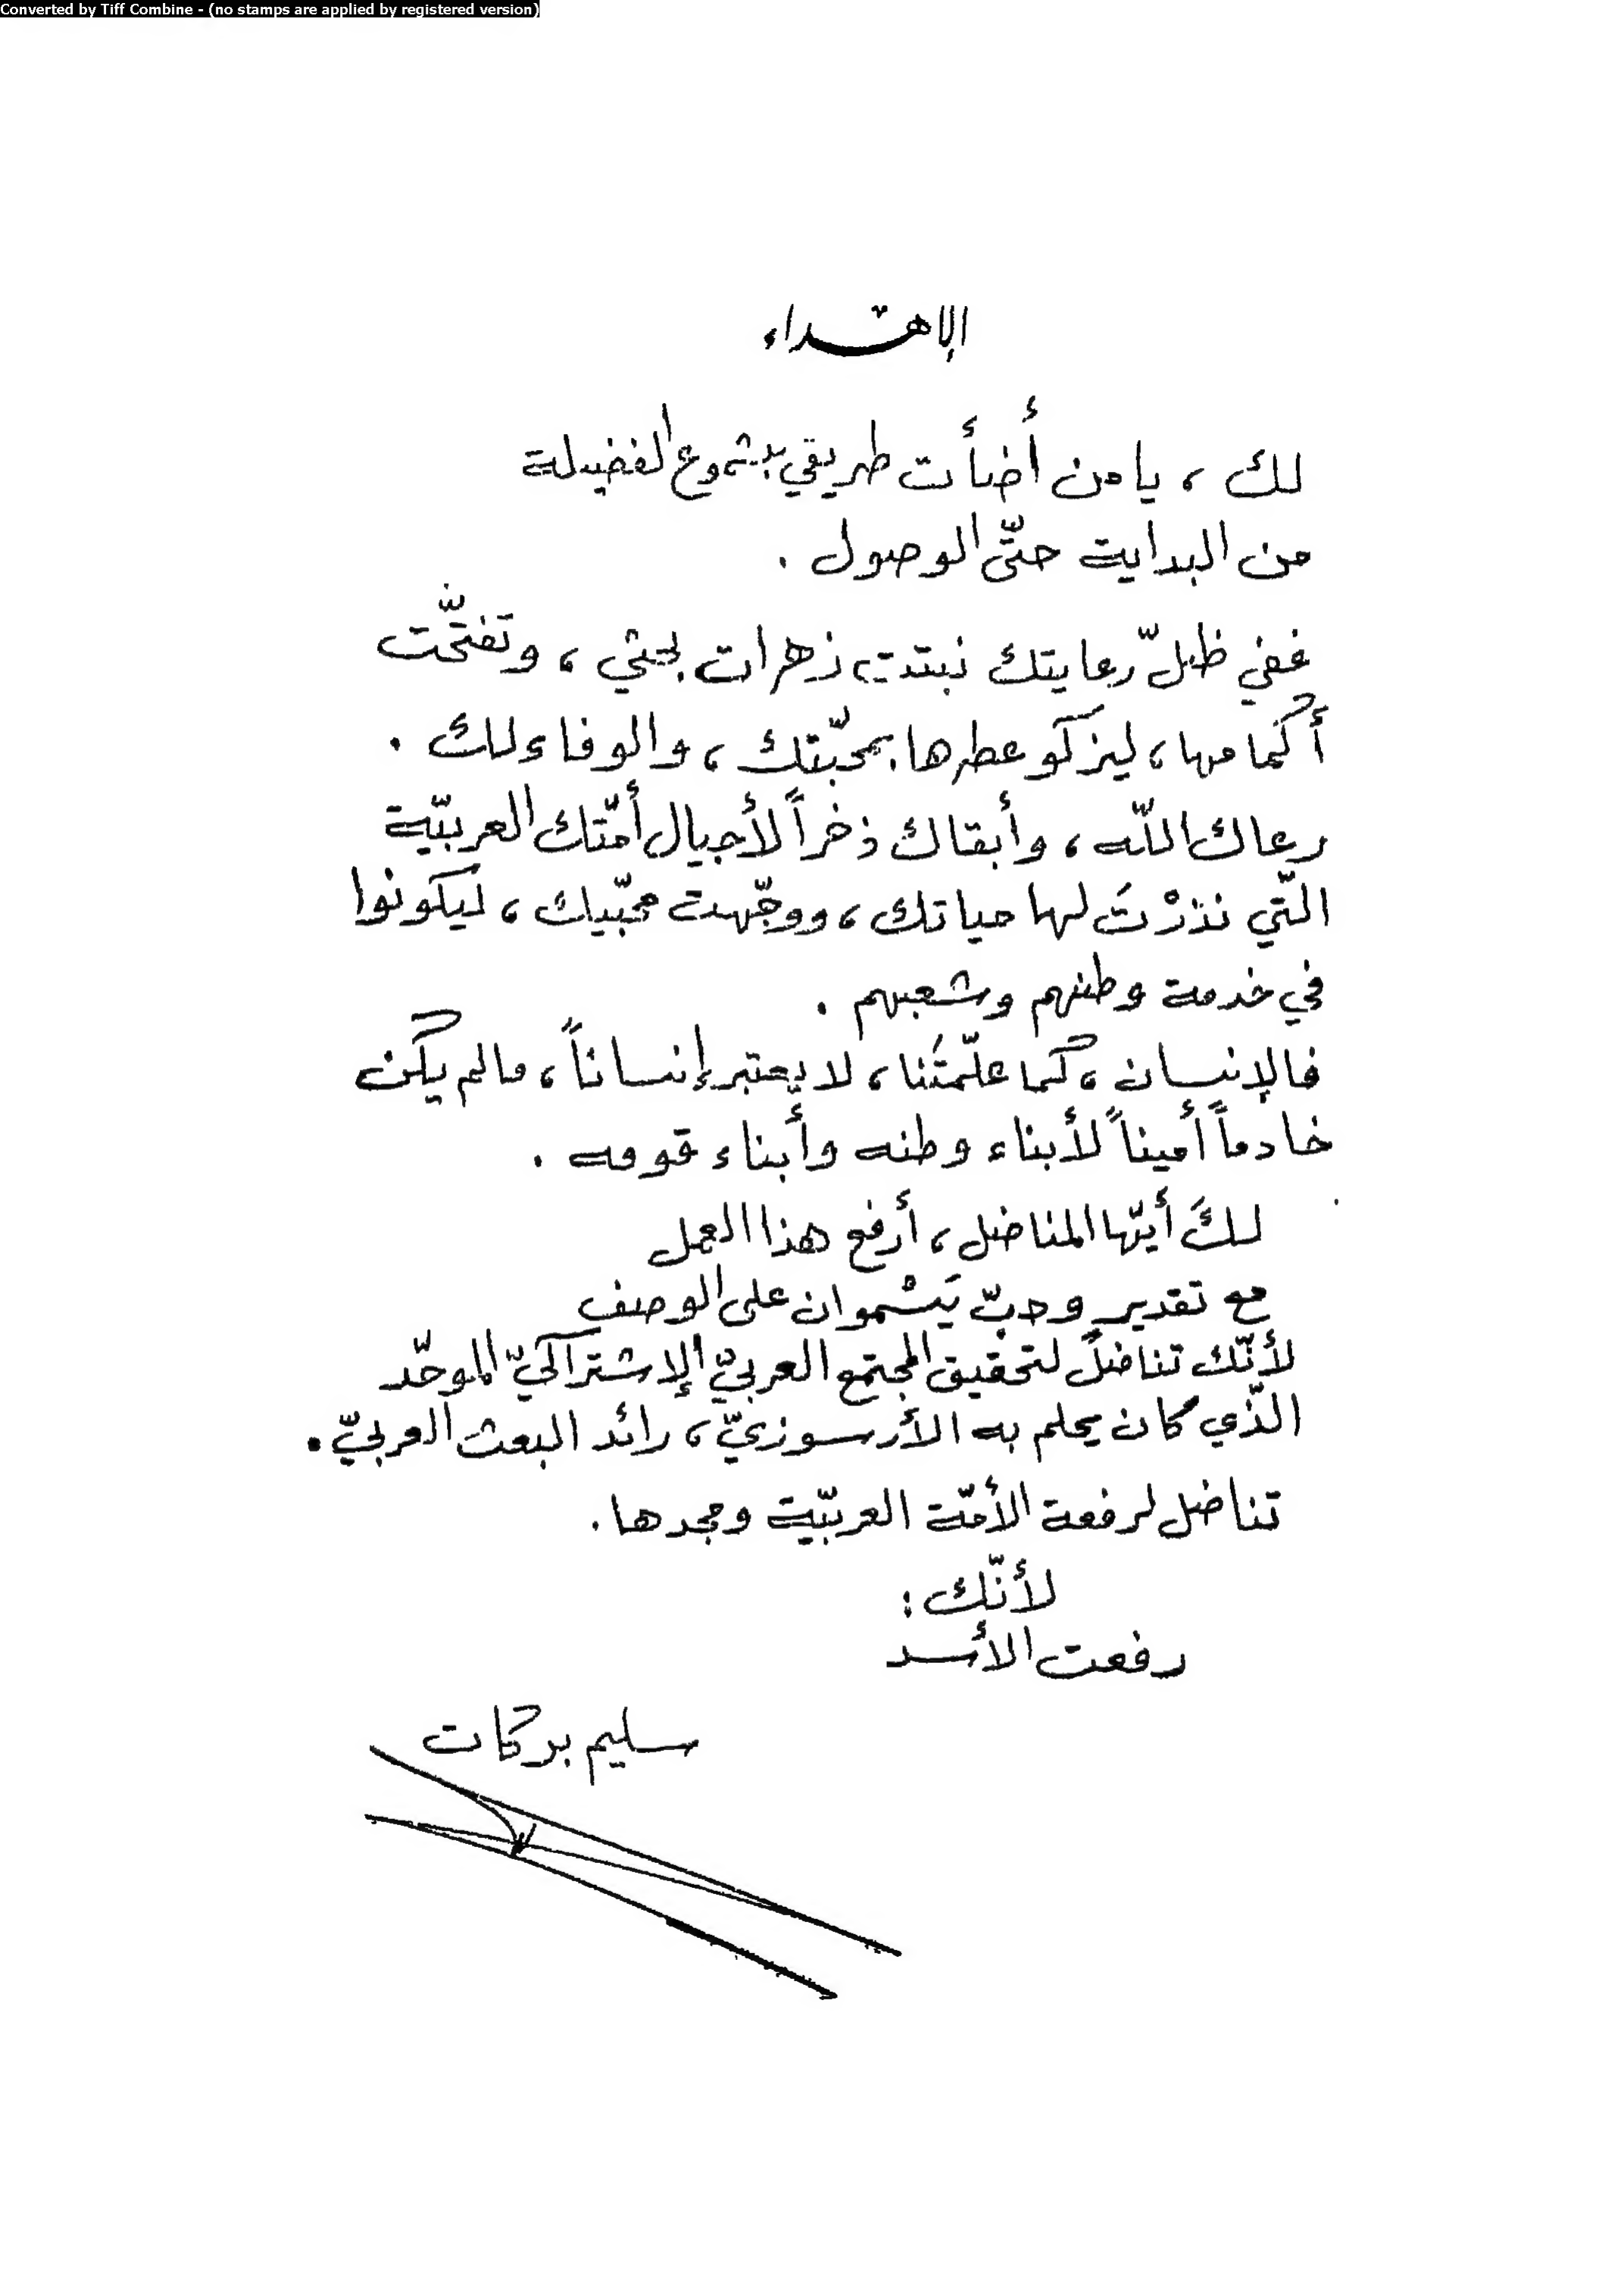 Converted by Tiff Combine - (no stamps are applied by registered version)
الإهداء
لك ، يا من أضأت طريقي بشموع الفضيلة
من البداية حتّى الوصول .
ففي ظلّ رعايتك نبتت زهرات بحثي ، وتفتّحت
أكمامها ، ليزكو عطرها بمحبّتك ، والوفاء لك .
رعاك اللّه ، وأبقاك ذخراً لأجيال أمّتك العربيّة
الّتي نذرْتَ لها حياتك ، ووجّهت محبّيك ، ليكونوا
في خدمة وطنهم وشعبهم .
فالإنسان ، كما علّمتَنا ، لا يعتبر إنساناً ، ما لم يكن
خادماً أميناً لأبناء وطنه وأبناء قومه .
لكَ أيّها المناضل ، أرفع هذا العمل
مع تقديرٍ وحبّ يَسْموان على الوصف
لأنّك تناضل لتحقيق المجتمع العربيّ الإشتراكيّ الموحّد
الّذي كان يحلم به الأرسوزيّ ، رائد البعث العربيّ .
تناضل لرفعة الأمّة العربيّة ومجدها .
لأنّك :
رفعت الأسد
سليم بركات